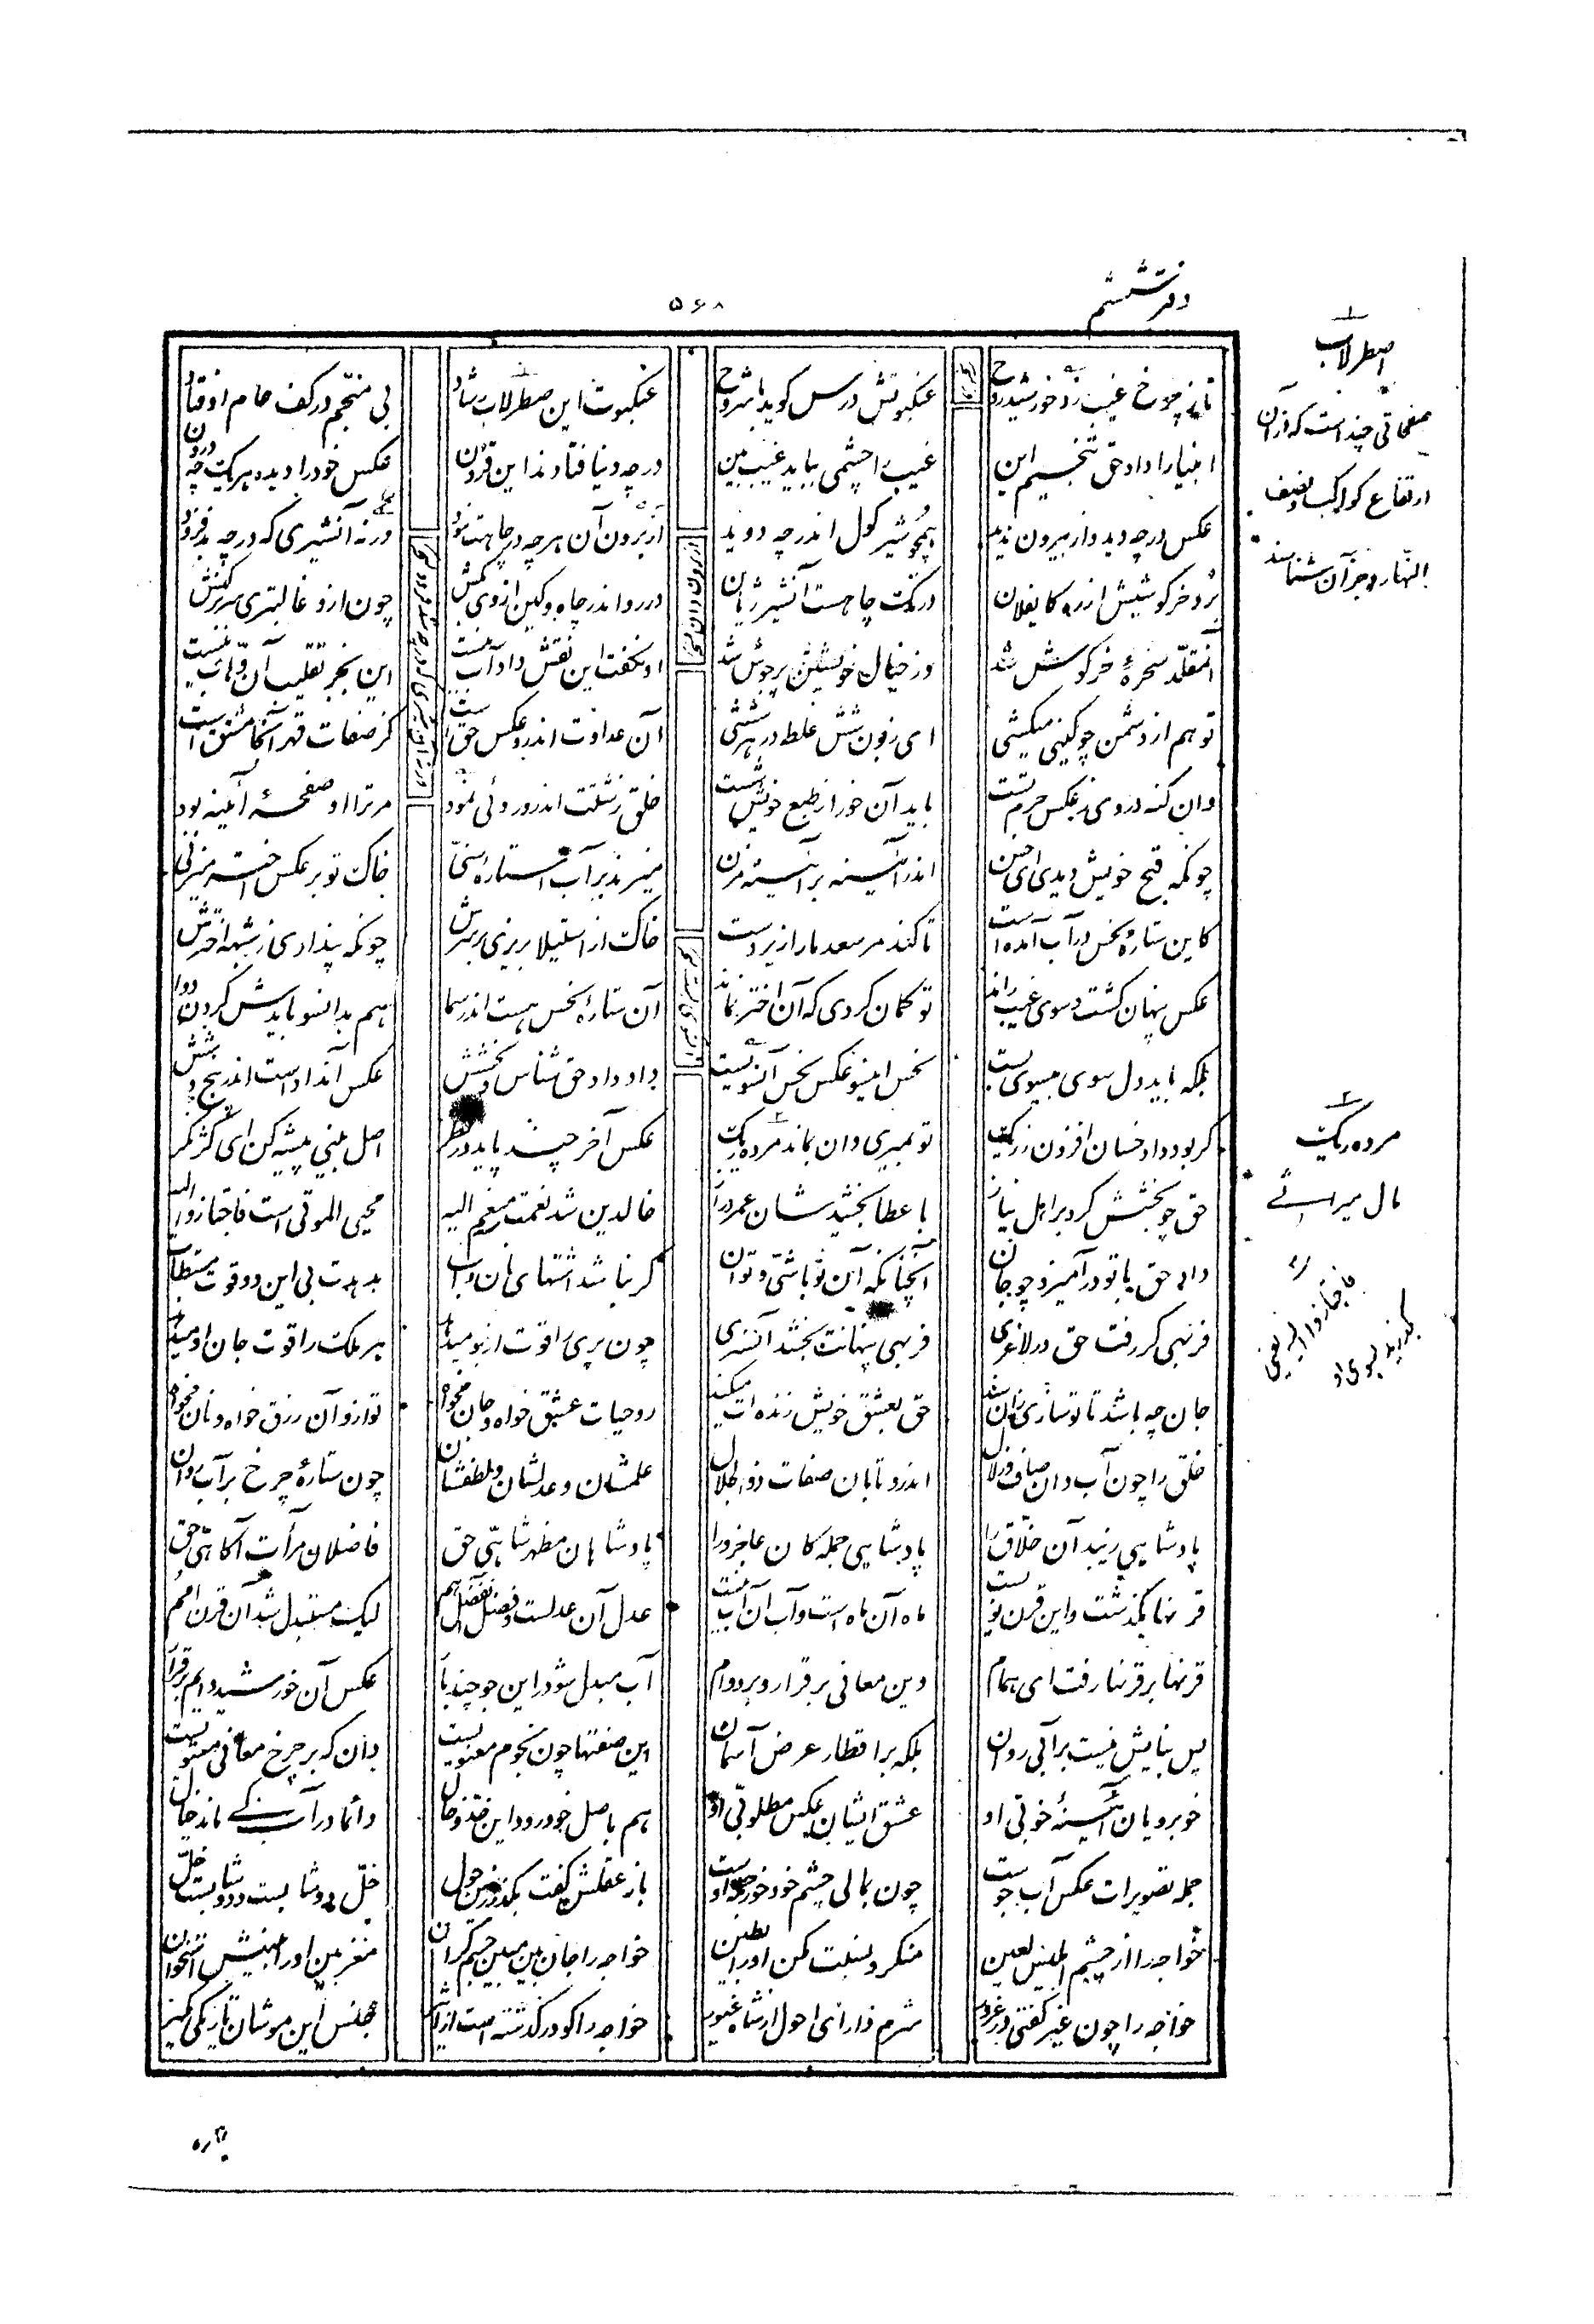 دفتر ششم
۵۶۸
تا ز چرخ غیب و ز خورشید روح عنکبوتش درس گوید با شروح عنکبوت این صطرلاب رشاد بی منجم در کف عام اوفتاد
انبیا را داد حق تنجیم این غیب را چشمی بباید غیب بین در چه دنیا فتادند این قرون عکس خود را دیده هر یک چه درون
عکس در چه دید و از بیرون ندید همچو شیر گول اندر چه دوید از برون دان هرچه در چاهت نمود ورنه آنشیری که در چه شد فرود
برد خرگوشیش از ره کایفلان در تک چاهست آنشیر ژیان در رو اندر چاه و کین از وی بکش چون ازو غالبتری سر برکنش
آنمقلد سخرهٔ خرگوش شد وز خیال خویشتن پر جوش شد او نگفت این نقش داد آب نیست این بجز تقلیب آن قلاب نیست
تو هم از دشمن چو کینی میکشی ای زبون شش غلط در هر ششی آن عداوت اندرو عکس حق است کز صفات قهر آنجا مشتق است
وان گنه در وی ز عکس جرم تست باید آن خو را ز طبع خویش شست خلق زشتت اندر او روئی نمود مر ترا او صفحهٔ آئینه بود
چونکه قبح خویش دیدی ای حسن اندر آئینه بر آئینه مزن میزند بر آب استارهٔ سنی خاک تو بر عکس اختر میزنی
کاین ستارهٔ نحس در آب آمده است تا کند مر سعد ما را زیردست خاک از استیلا بریزی بر سرش چونکه پنداری ز شبهه اخترش
عکس پنهان گشت و سوی غیب راند تو گمان کردی که آن اختر نماند آن ستارهٔ نحس هست اندر سما هم بدانسو بایدش کردن دوا
بلکه باید دل سوی بیسوی بست نحس اینسو عکس نحس آنسویست داد داد حق شناس و بخششش عکس آنداد است اندر پنج و شش
گر بود داد خسان افزون ز ریگ تو بمیری وان بماند مرده ریگ عکس آخر چند پاید در نظر اصل بینی پیشه کن ای کژ نگر
حق چو بخشش کرد بر اهل نیاز با عطا بخشیدشان عمر دراز خالدین شد نعمت و منعم علیه محیی الموتی است فاجتازوا الیه
داد حق با تو در آمیزد چو جان آنچنانکه آن تو باشی و تو آن گر نباشد اشتهای نان و آب بدهدت بی این دو قوت مستطاب
فربهی گر رفت حق در لاغری فربهی پنهانت بخشد آنسری چون پری را قوت از بو میدهد هر ملک را قوت جان او میدهد
جان چه باشد تا تو سازی زان سند حق بعشق خویش زنده ات میکند زو حیات عشق خواه و جان مخواه تو ازو آن رزق خواه و نان مخواه
خلق را چون آب دان صاف و زلال اندرو تابان صفات ذوالجلال علمشان و عدلشان و لطفشان چون ستارهٔ چرخ بر آب روان
پادشاهی زیبد آن خلاق را پادشاهی جمله گان عاجز ورا پادشاهان مظهر شاهی حق فاضلان مرآت آگاهی حق
قرنها بگذشت و این قرن نویست ماه آن ماه است و آب آن آب نیست عدل آن عدلست و فضل آن فضل هم لیک مستبدل شد آن قرن و امم
قرنها بر قرنها رفت ای همام وین معانی بر قرار و بر دوام آب مبدل شد در این جو چند بار عکس آن خورشید دایم برقرار
پس بنایش نیست بر آبی روان بلکه بر اقطار عرض آسمان این صفتها چون نجوم معنویست دان که بر چرخ معانی مستویست
خوبرویان آئینهٔ خوبی او عشق ایشان عکس مطلوبی او هم باصل خود رود این خد و خال دائما در آب کی ماند خیال
جمله تصویرات عکس آب جوست چون بمالی چشم خود خود جمله اوست باز عقلش گفت بگذر زین حول خل دوشابست و دوشابست خل
خواجه را از چشم ابلیس لعین منگر و نسبت مکن او را بطین خواجه را جان بین مبین جسم گران مغز بین او را مبینش استخوان
خواجه را چون غیر گفتی از غرور شرم دار ای احول از شاه غیور خواجه را کو در گذشته است از اثیر جنس این موشان تاریکی مگیر
اصطرلاب
صفحاتی چند است که از آن
ارتفاع کواکب و نصف
النهار و جز آن شناسند
مرده ریگ
مال میراث
فاجتازوا الیه یعنی
بگذرید بسوی او